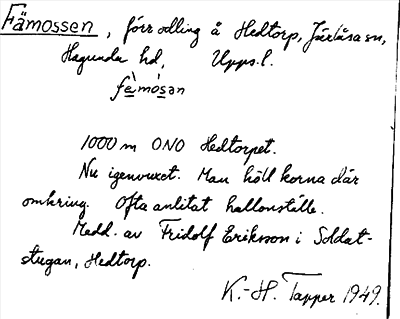 Fämossen, förr odling å Hedtorp, Järlåsa sn,
Hagunda hd, Upps. l.
fä̀mósən
1000 m ONO Hedtorpet.
Nu igenvuxet. Man höll korna där
omkring. Ofta anlitat hallonställe.
Medd. av Fridolf Eriksson i Soldat-
stugan, Hedtorp.
K.-H. Tapper 1949.